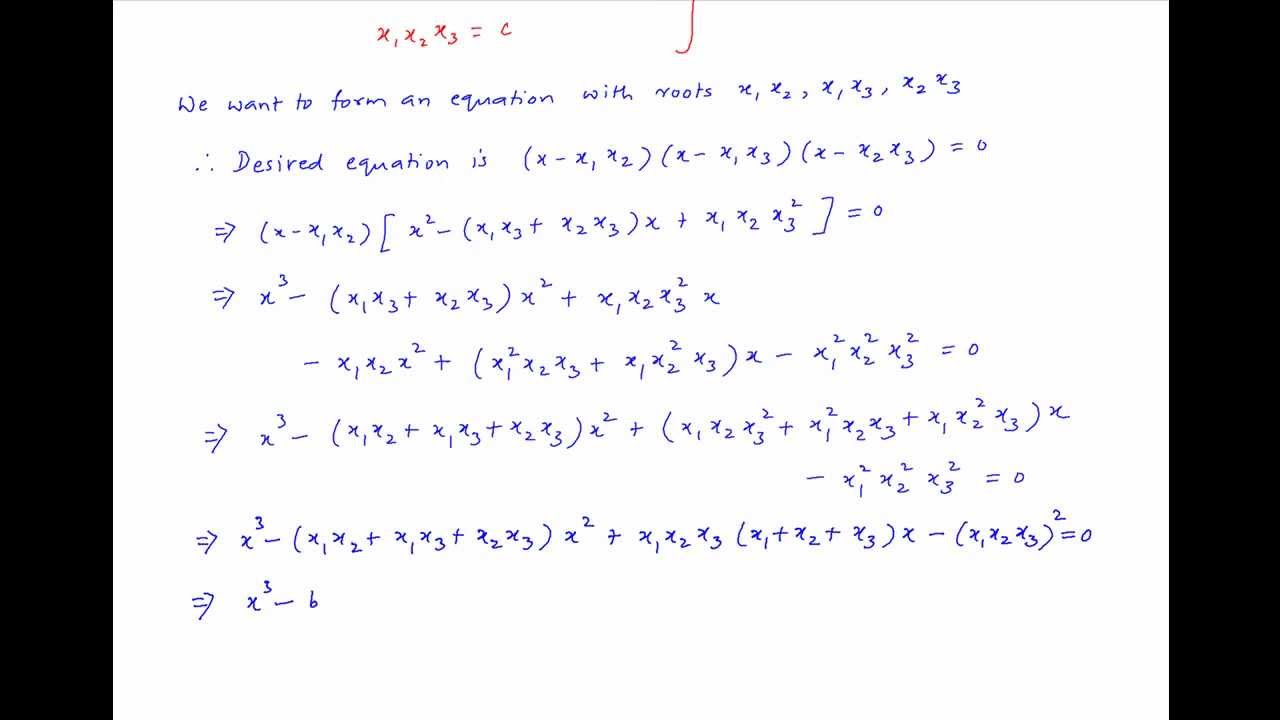 x₁x₂x₃ = c
We want to form an equation with roots x₁x₂, x₁x₃, x₂x₃
∴ Desired equation is (x − x₁x₂)(x − x₁x₃)(x − x₂x₃) = 0
⇒ (x − x₁x₂)[x² − (x₁x₃ + x₂x₃)x + x₁x₂x₃²] = 0
⇒ x³ − (x₁x₃ + x₂x₃)x² + x₁x₂x₃² x
− x₁x₂x² + (x₁²x₂x₃ + x₁x₂²x₃)x − x₁²x₂²x₃² = 0
⇒ x³ − (x₁x₂ + x₁x₃ + x₂x₃)x² + (x₁x₂x₃² + x₁²x₂x₃ + x₁x₂²x₃)x
− x₁²x₂²x₃² = 0
⇒ x³ − (x₁x₂ + x₁x₃ + x₂x₃)x² + x₁x₂x₃(x₁ + x₂ + x₃)x − (x₁x₂x₃)² = 0
⇒ x³ − b